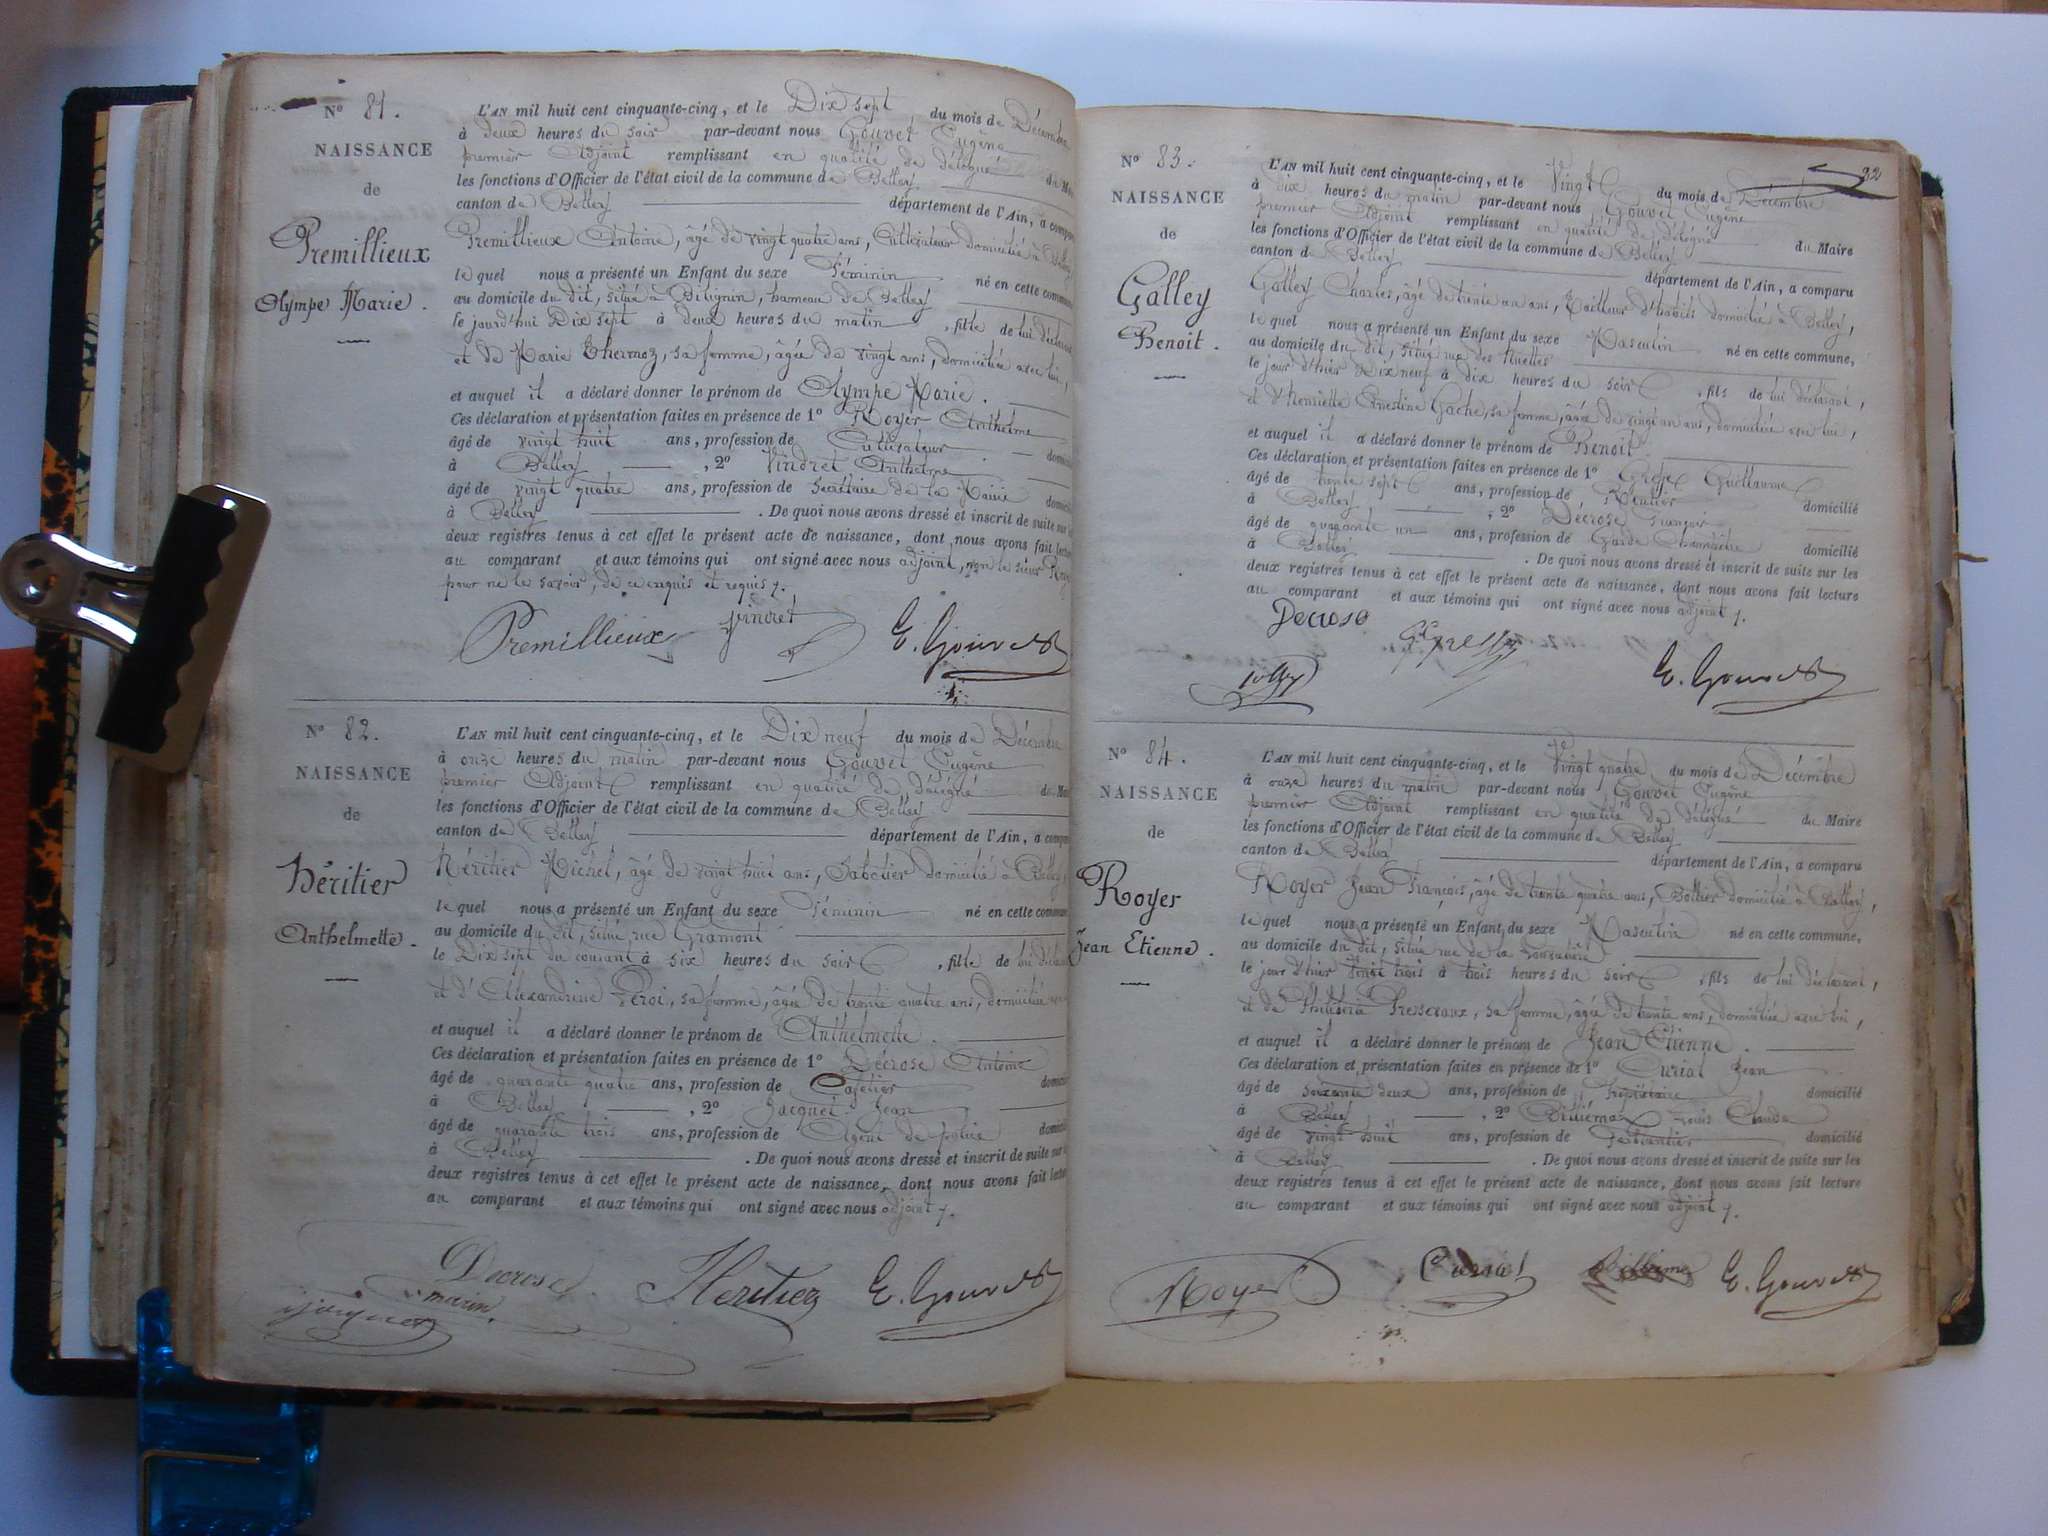 N° 81.
NAISSANCE
de
Premillieux
Olympe Marie.
L'AN mil huit cent cinquante-cinq, et le Dix sept du mois de Décembre
à deux heures du soir par-devant nous Gouvet Eugène
premier Adjoint remplissant en qualité de délégué du Maire
les fonctions d'Officier de l'état civil de la commune de Belley
canton de Belley département de l'Ain, a comparu
Premillieux Antoine, âgé de vingt quatre ans, Cultivateur domicilié à Belley
le quel nous a présenté un Enfant du sexe féminin né en cette commune
au domicile du dit, situé à Bitignin, hameau de Belley
le jourd'hui Dix sept à deux heures du matin, fille de lui déclarant
et de Marie Thermoz, sa femme, âgée de vingt ans, domiciliée avec lui,
et auquel il a déclaré donner le prénom de Olympe Marie.
Ces déclaration et présentation faites en présence de 1° Royer Anthelme
âgé de vingt huit ans, profession de Cultivateur domicilié
à Belley, 2° Vindret Anthelme
âgé de vingt quatre ans, profession de Secrétaire de la Mairie domicilié
à Belley. De quoi nous avons dressé et inscrit de suite sur les
deux registres tenus à cet effet le présent acte de naissance, dont nous avons fait lecture
au comparant et aux témoins qui ont signé avec nous adjoint, non le sieur Royer
pour ne le savoir, de ce enquis et requis.
Premillieux Vindret E. Gouvet
N° 82.
NAISSANCE
de
Héritier
Anthelmette.
L'AN mil huit cent cinquante-cinq, et le Dix neuf du mois de Décembre
à onze heures du matin par-devant nous Gouvet Eugène
premier Adjoint remplissant en qualité de délégué du Maire
les fonctions d'Officier de l'état civil de la commune de Belley
canton de Belley département de l'Ain, a comparu
Héritier Michel, âgé de vingt huit ans, Sabotier domicilié à Belley,
le quel nous a présenté un Enfant du sexe féminin né en cette commune
au domicile du dit, situé rue Gramont
le Dix sept du courant à six heures du soir, fille de lui déclarant
et d'Alexandrine Peroi, sa femme, âgée de trente quatre ans, domiciliée avec
et auquel il a déclaré donner le prénom de Anthelmette.
Ces déclaration et présentation faites en présence de 1° Décrose Antoine
âgé de quarante quatre ans, profession de Cafetier domicilié
à Belley, 2° Jacquet Jean
âgé de quarante trois ans, profession de Agent de police domicilié
à Belley. De quoi nous avons dressé et inscrit de suite sur les
deux registres tenus à cet effet le présent acte de naissance, dont nous avons fait lecture
au comparant et aux témoins qui ont signé avec nous adjoint.
Decrose Heritier E. Gouvet
jacquet
32
N° 83.
NAISSANCE
de
Galley
Benoit.
L'AN mil huit cent cinquante-cinq, et le Vingt du mois de Décembre
à dix heures du matin par-devant nous Gouvet Eugène
premier Adjoint remplissant en qualité de délégué du Maire
les fonctions d'Officier de l'état civil de la commune de Belley
canton de Belley département de l'Ain, a comparu
Galley Charles, âgé de trente un ans, Tailleur d'habits domicilié à Belley,
le quel nous a présenté un Enfant du sexe Masculin né en cette commune,
au domicile du dit, situé rue des Ruettes
le jour d'hier Dix neuf à dix heures du soir, fils de lui déclarant,
et d'henriette Ernestine Gache, sa femme, âgée de vingt un ans, domiciliée avec lui,
et auquel il a déclaré donner le prénom de Benoit.
Ces déclaration et présentation faites en présence de 1° Guillaume
âgé de trente sept ans, profession de Rentier domicilié
à Belley, 2° Décrose François
âgé de quarante un ans, profession de Garde Champêtre domicilié
à Belley. De quoi nous avons dressé et inscrit de suite sur les
deux registres tenus à cet effet le présent acte de naissance, dont nous avons fait lecture
au comparant et aux témoins qui ont signé avec nous adjoint.
Decrose
E. Gouvet
N° 84.
NAISSANCE
de
Royer
Jean Etienne.
L'AN mil huit cent cinquante-cinq, et le Vingt quatre du mois de Décembre
à onze heures du matin par-devant nous Gouvet Eugène
premier Adjoint remplissant en qualité de délégué du Maire
les fonctions d'Officier de l'état civil de la commune de Belley
canton de Belley département de l'Ain, a comparu
Royer Jean François, âgé de trente quatre ans, Voiturier domicilié à Belley,
le quel nous a présenté un Enfant du sexe Masculin né en cette commune,
au domicile du dit, situé rue de la
le jour d'hier Vingt trois à trois heures du soir, fils de lui déclarant,
et de sa femme, âgée de trente ans, domiciliée avec lui,
et auquel il a déclaré donner le prénom de Jean Etienne.
Ces déclaration et présentation faites en présence de 1° Curial Jean
âgé de soixante deux ans, profession de Propriétaire domicilié
à Belley, 2° Billiémaz Louis Claude
âgé de vingt huit ans, profession de Ferblantier domicilié
à Belley. De quoi nous avons dressé et inscrit de suite sur les
deux registres tenus à cet effet le présent acte de naissance, dont nous avons fait lecture
au comparant et aux témoins qui ont signé avec nous adjoint.
Royer Curial E. Gouvet